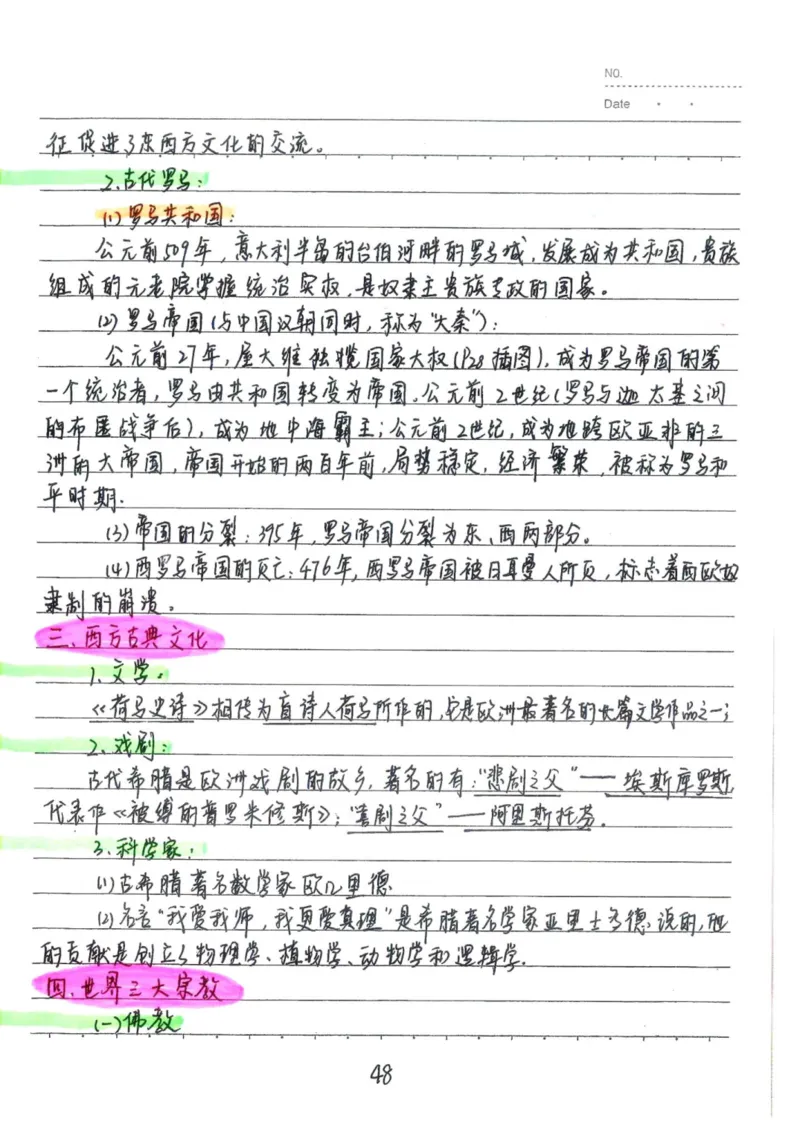 NO.
Date
征促进了东西方文化的交流。
2.古代罗马:
(1)罗马共和国:
公元前509年,意大利半岛的台伯河畔的罗马城,发展成为共和国,贵族
组成的元老院掌握统治实权,是奴隶主贵族专政的国家。
(2)罗马帝国(与中国汉朝同时,称为“大秦”):
公元前27年,屋大维独揽国家大权(P28插图),成为罗马帝国的第
一个统治者,罗马由共和国转变为帝国,公元前2世纪(罗马与迦太基之间
的布匿战争后),成为地中海霸主;公元前2世纪,成为地跨欧亚非的三
洲的大帝国,帝国开始的两百年前,局势稳定,经济繁荣,被称为罗马和
平时期.
(3)帝国的分裂:395年,罗马帝国分裂为东、西两部分。
(4)西罗马帝国的灭亡:476年,西罗马帝国被日耳曼人所灭,标志着西欧奴
隶制的崩溃。
三、西方古典文化
1.文学。
《荷马史诗》相传为盲诗人荷马所作的,它是欧洲最著名的长篇文学作品之一;
2.戏剧:
古代希腊是欧洲戏剧的故乡,著名的有:“悲剧之父”——埃斯库罗斯,
代表作《被缚的普罗米修斯》;“喜剧之父”——阿里斯托芬.
3.科学家:
(1)古希腊著名数学家欧几里德
(2)名言“我爱我师,我更爱真理”是希腊著名学家亚里士多德说的,他
的贡献是创立了物理学、植物学、动物学和逻辑学.
四.世界三大宗教
(一)佛教
48